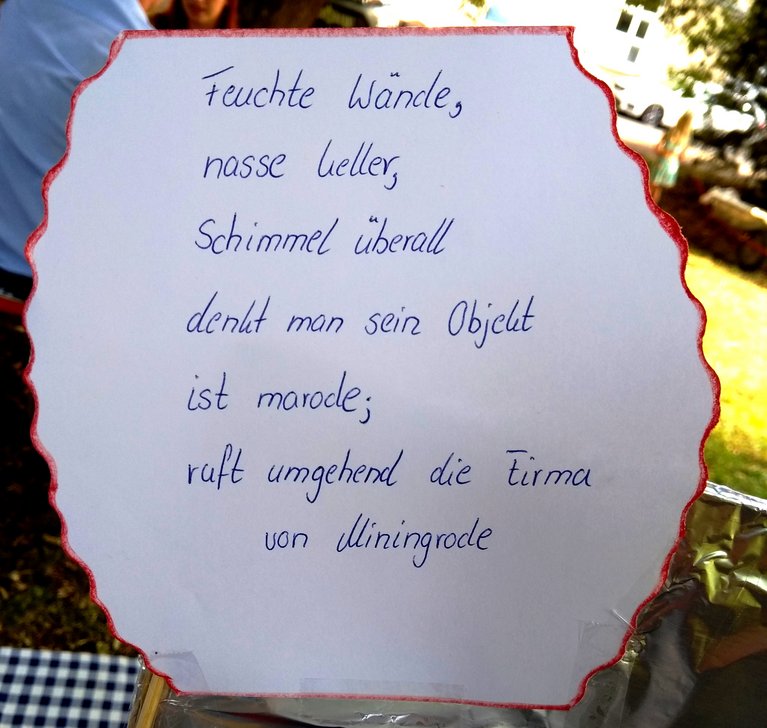 Feuchte Wände,
nasse Keller,
Schimmel überall
denkt man sein Objekt
ist marode;
ruft umgehend die Firma
von Miningrode